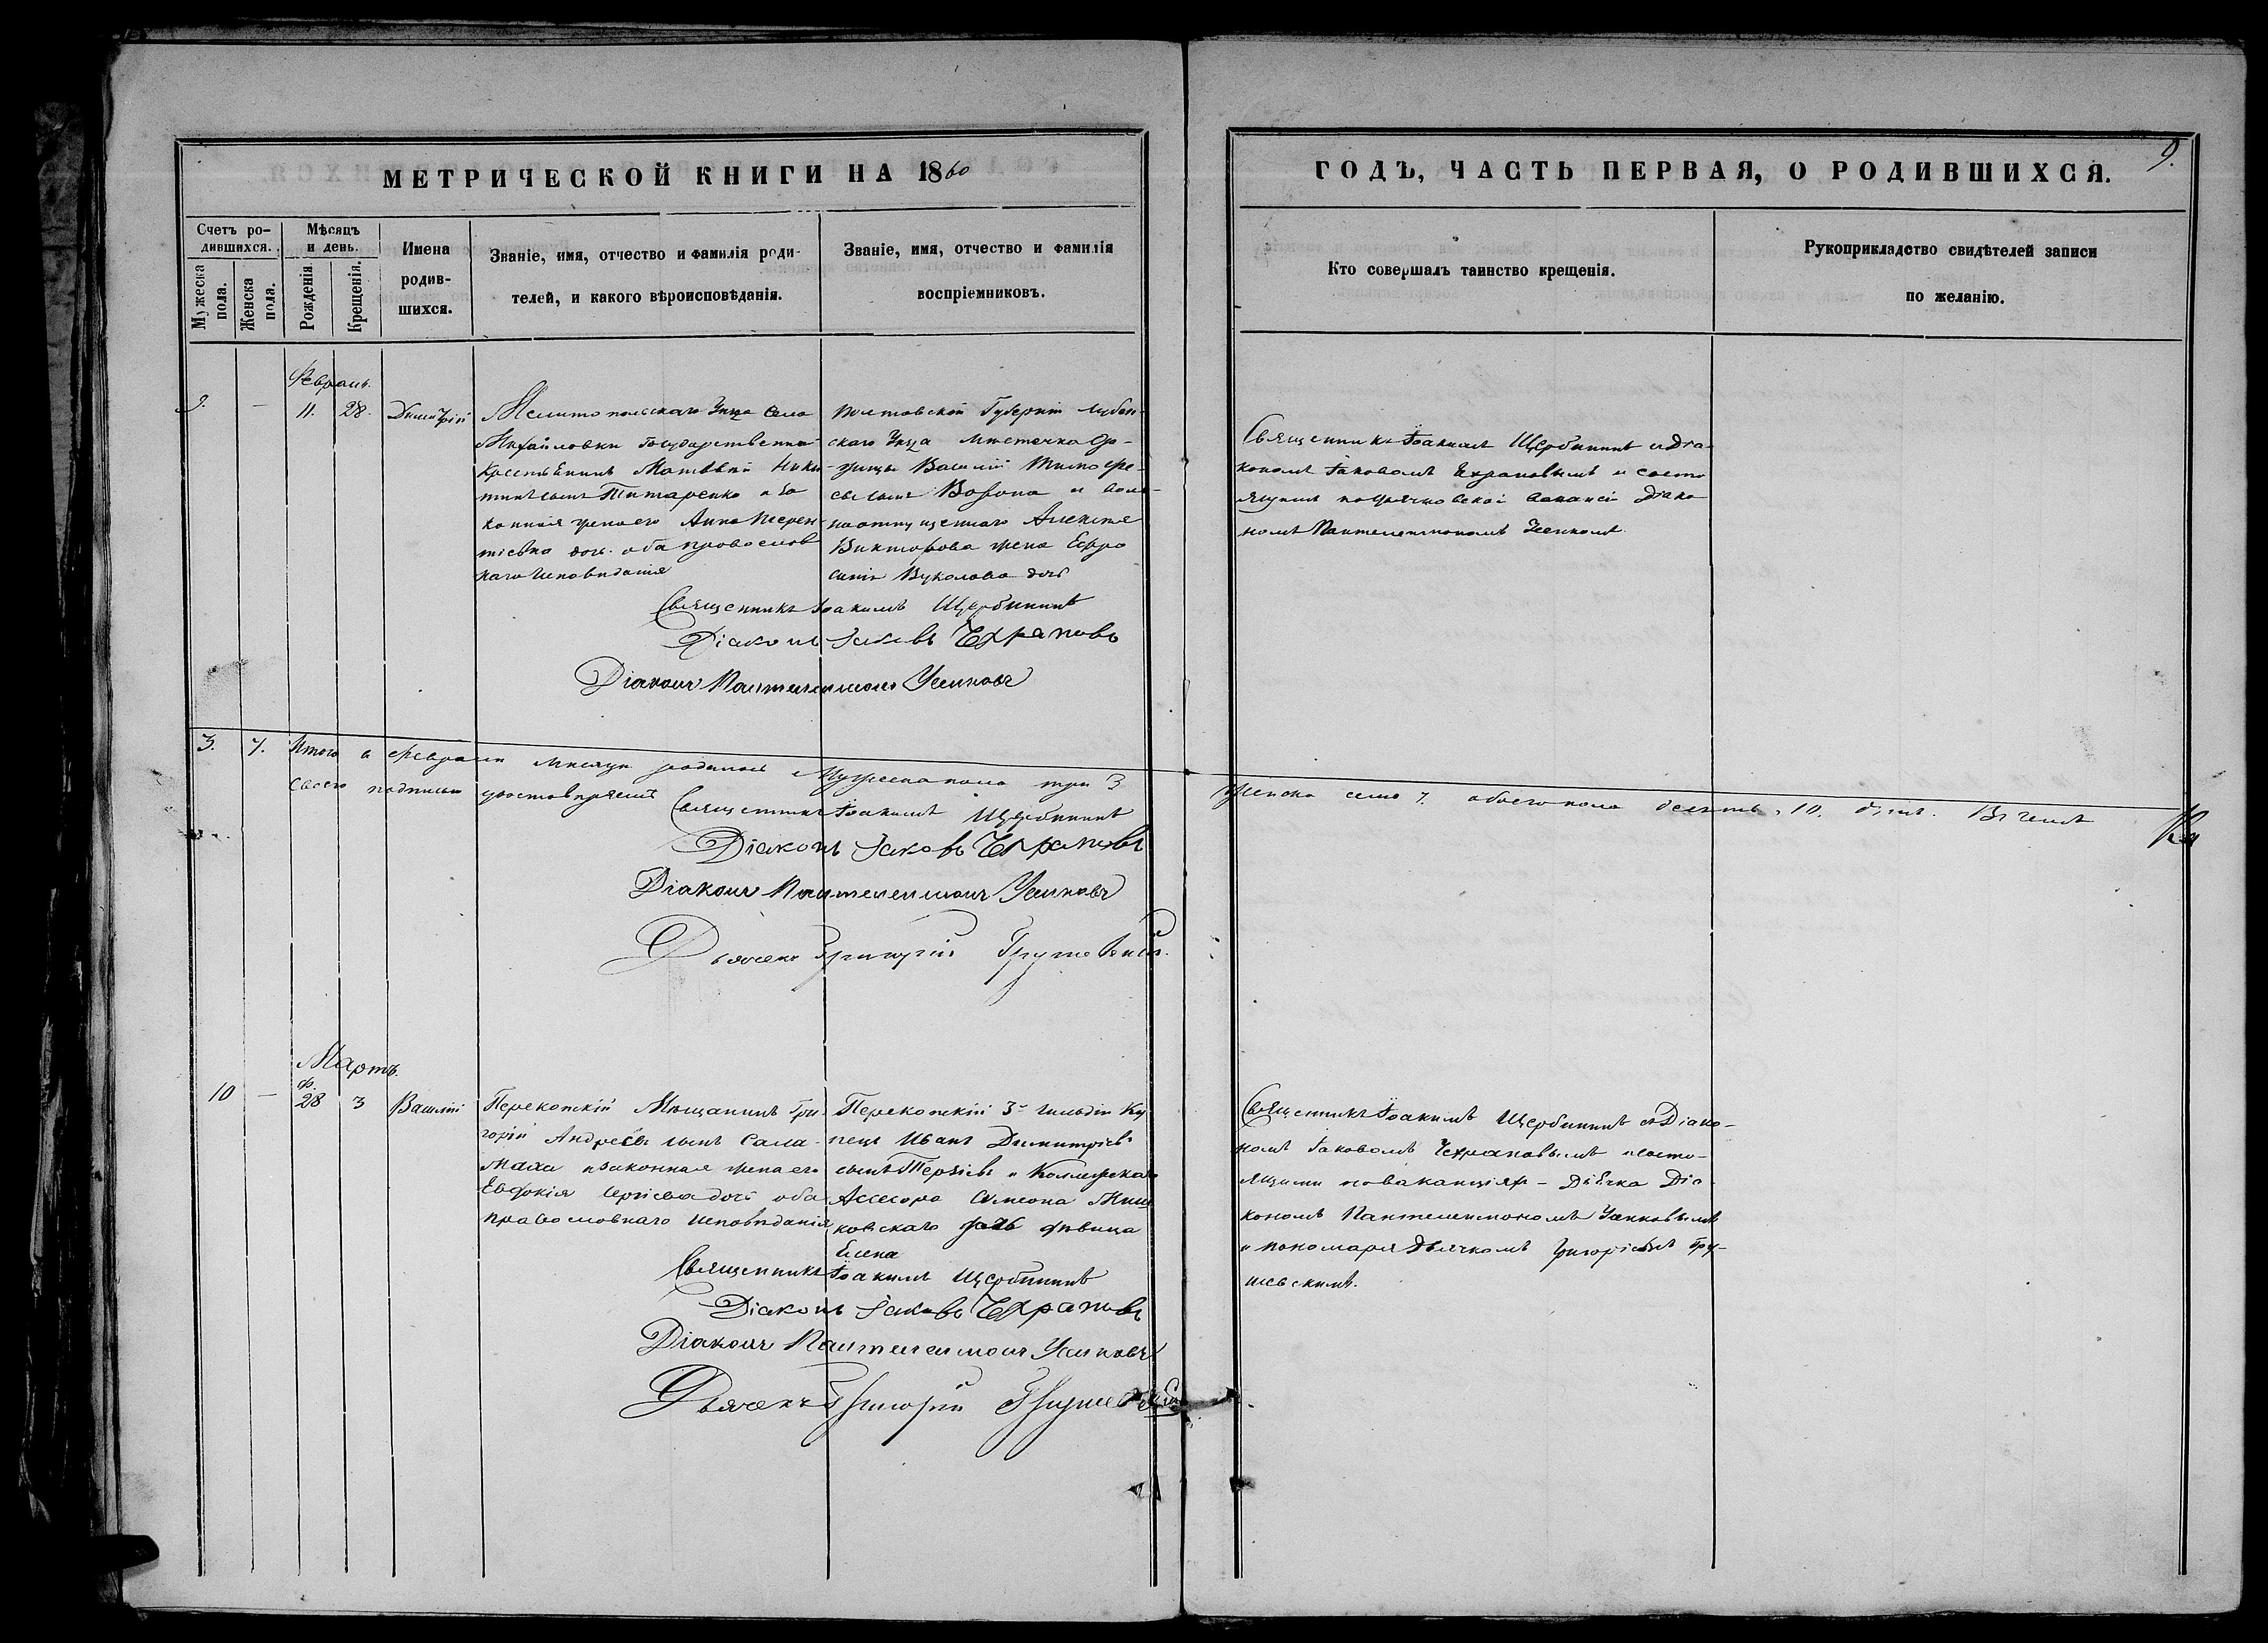 МЕТРИЧЕСКОЙ КНИГИ НА 1860
ГОДЪ, ЧАСТЬ ПЕРВАЯ, О РОДИВШИХСЯ.
9.
Счетъ ро-
дившихся.
Мужеска пола.
Женска пола.
Мѣсяцъ
и день.
Рожденія.
Крещенія.
Имена
родив-
шихся.
Званіе, имя, отчество и фамилія роди-
телей, и какого вѣроисповѣданія.
Званіе, имя, отчество и фамилія
воспріемниковъ.
Кто совершалъ таинство крещенія.
Рукоприкладство свидѣтелей записи
по желанію.
Февраль.
9. — 11. 28. Димитрій
Мелитопольскаго Уѣзда села
Михайловки Государственный
Крестьянинъ Матвѣй Ники-
тинъ сынъ Титаренко и за
конная жена его Анна Терен-
тіева доч. оба православ
наго исповѣданія
Полтавской Губерніи Лубен-
скаго Уѣзда мѣстечка
Василій Тимофе-
евъ сынъ Ворона и воль-
ноотпущеннаго Алексѣя
Викторова жена Евфро
синія Вуколова дочь
Священникъ Іоакимъ Щербининъ
Діаконъ Іаковъ Чехрановъ
Діаконъ Пантелеимонъ Усенковъ
Священникъ Іоакимъ Щербининъ съ Діа-
кономъ Іаковомъ Чехрановымъ и состо
ящимъ на вакансіи Діако
номъ Пантелеимономъ
3. 7. Итого в феврале месяце родилось Мужеска пола три 3
женска семь 7. обоего пола десять, 10. душъ. Въ чемъ
своею подписью удостовѣряемъ
Священникъ Іоакимъ Щербининъ
Діаконъ Іаковъ Чехрановъ
Діаконъ Пантелеимонъ Усенковъ
Дьячекъ Григорій Грушевскій.
Мартъ.
Ф.
10 — 28 3 Василій
Перекопскій Мѣщанинъ Гри-
горій Андреевъ сынъ Сала-
маха и законная жена его
Евдокія Сергіева дочь оба
православнаго исповѣданія
Перекопскій 3й гильдіи Ку
пецъ Иванъ Димитріевъ
сынъ Терзіевъ и Коллежскаго
Ассесора Симеона
ковскаго дочь дѣвица
Елена
Священникъ Іоакимъ Щербининъ
Діаконъ Іаковъ Чехрановъ
Діаконъ Пантелеимонъ Усенковъ
Дьячекъ Григорій Грушевскій
Священникъ Іоакимъ Щербининъ съ Діако-
номъ Іаковомъ Чехрановымъ и состо-
ящими на ваканціях – Дьячка Діа-
кономъ Пантелеимономъ Усенковымъ
и пономаря Дьячкомъ Григоріемъ Гру-
шевскимъ.